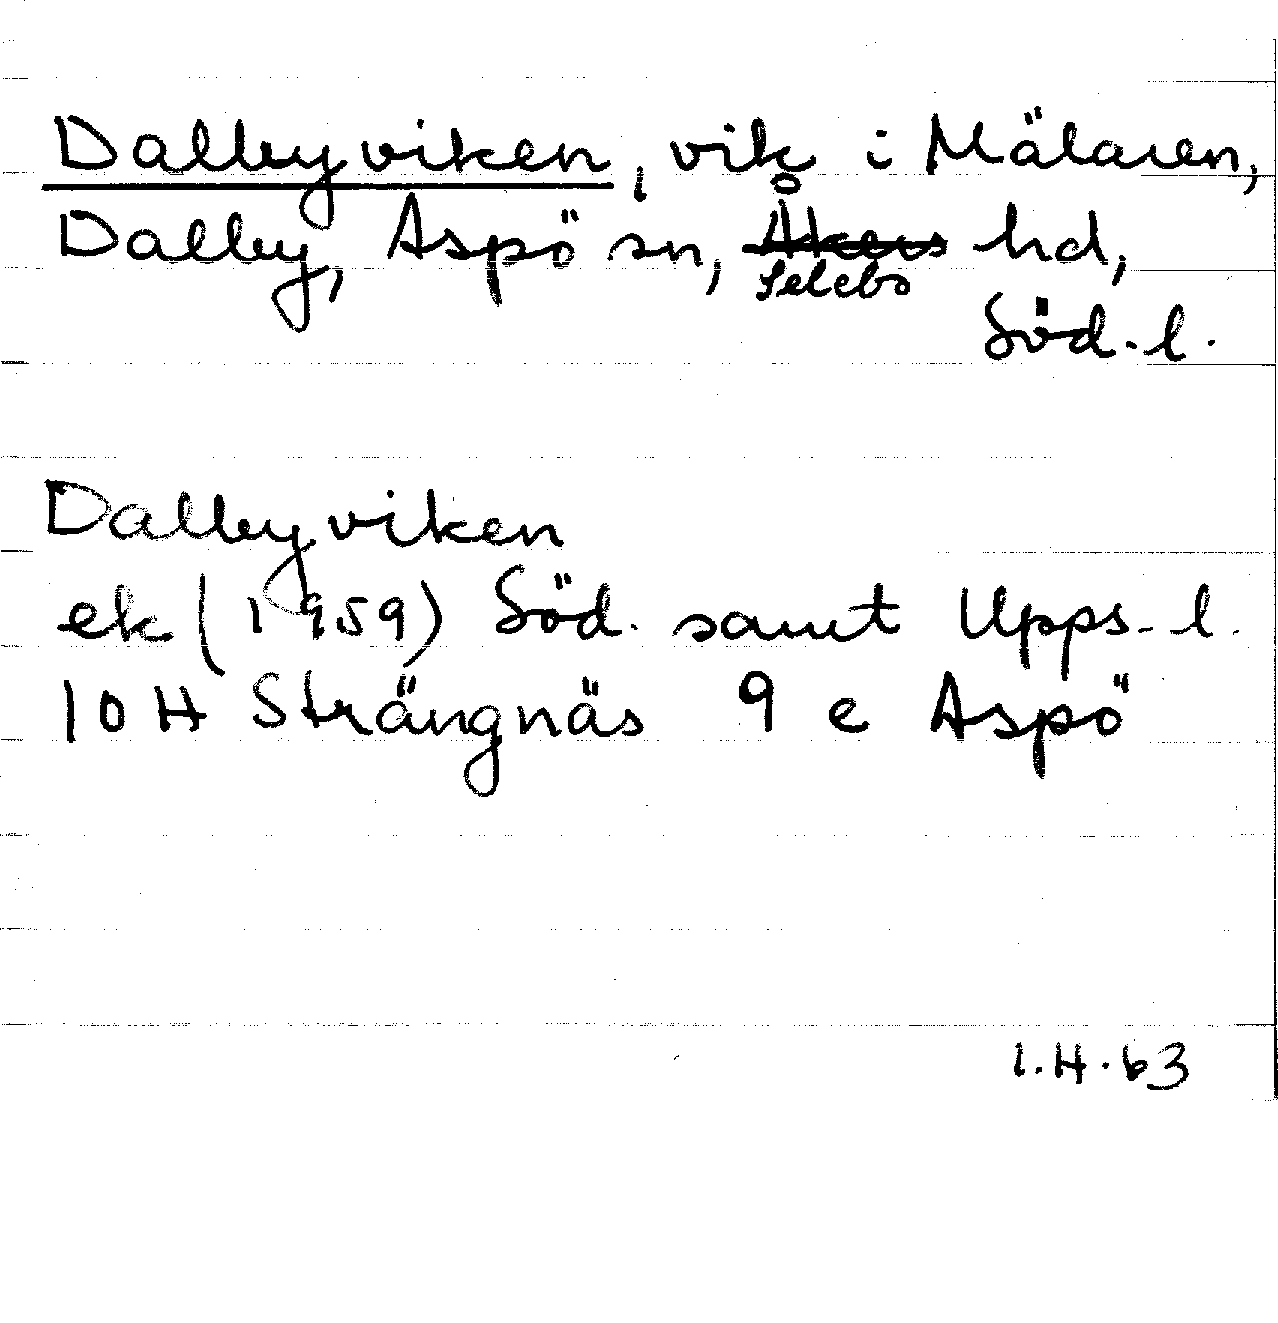 Dalbyviken, vik i Mälaren,
Dalby, Aspö sn, Åkers hd,
Selebo
Söd.l.
Dalbyviken
ek (1959) Söd. samt Upps-l.
10 H Strängnäs 9 e Aspö
I.H.63